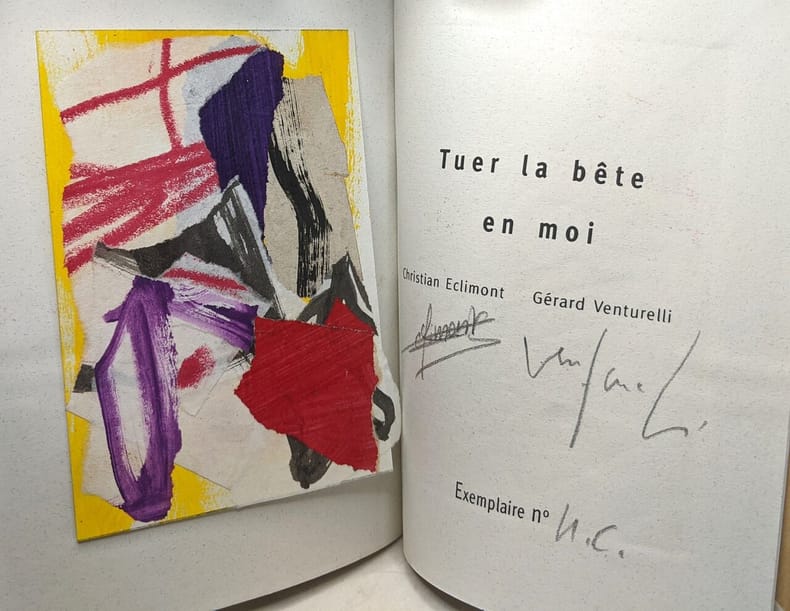 Tuer la bête
en moi
Christian Eclimont Gérard Venturelli
Eclimont Venturelli
Exemplaire nº H.C.